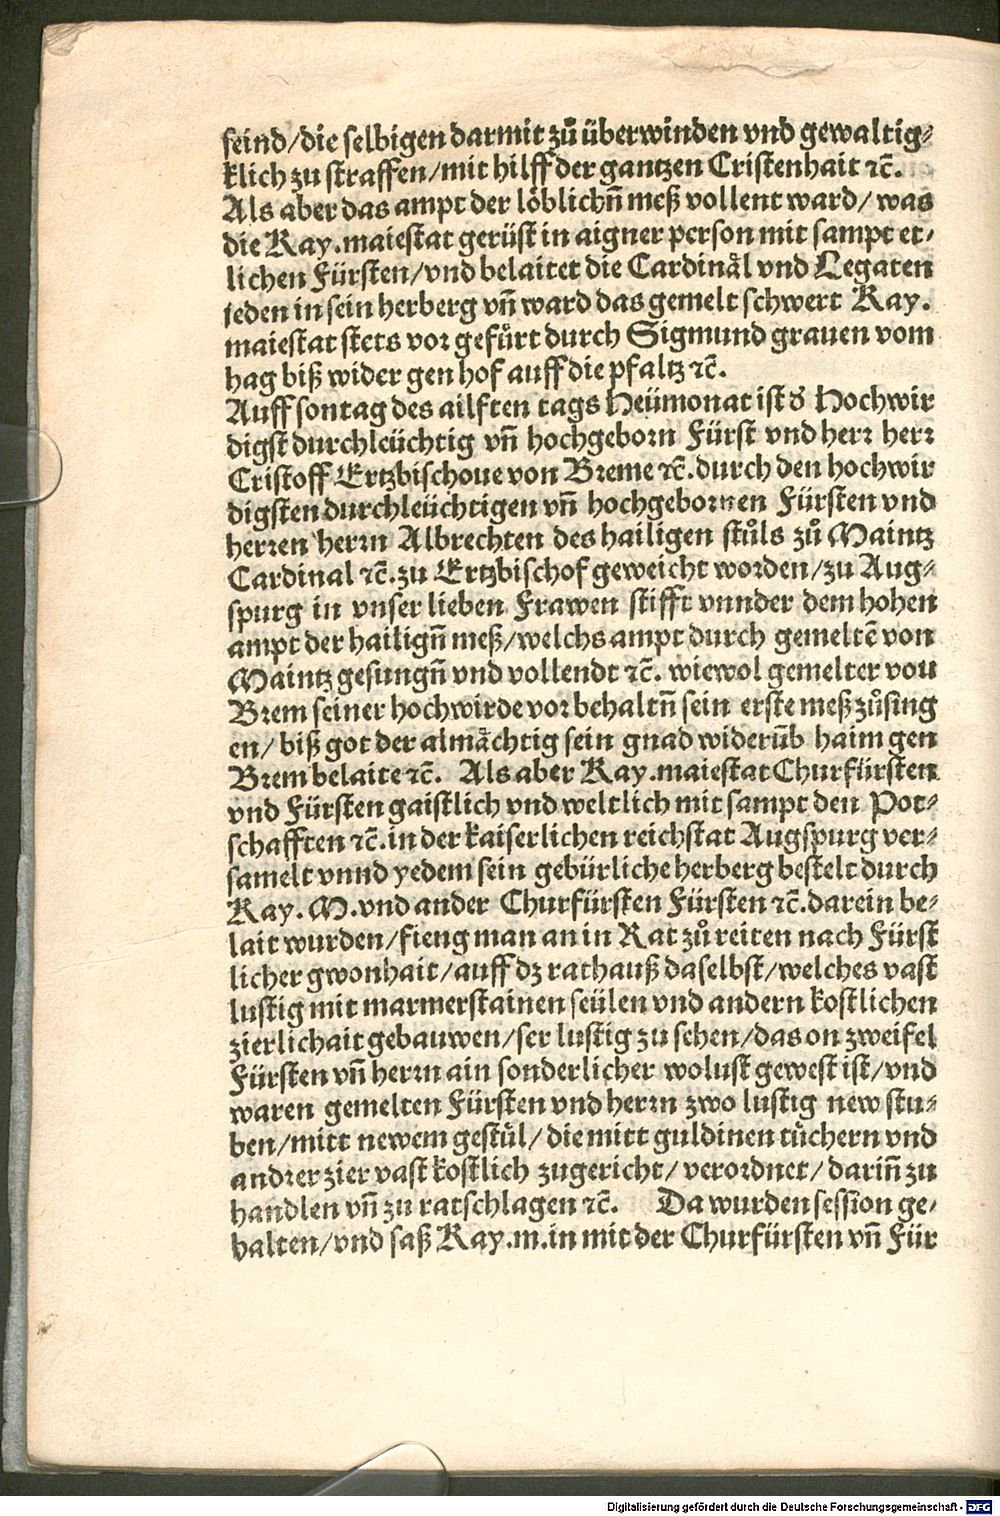 feind/die selbigen darmit zů überwinden vnd gewaltig⸗
klich zu straffen/mit hilff der gantzen Cristenhait ⁊c̄.
Als aber das ampt der löblichn̄ meß vollent ward/ was
die Kay.maiestat gerüst in aigner person mit sampt et⸗
lichen Fürsten/vnd belaitet die Cardinål vnd Legaten
jeden in sein herberg vn̄ ward das gemelt schwert Kay.
maiestat stets vor gefůrt durch Sigmund grauen vom
hag biß wider gen hof auff die pfaltz ⁊c̄.
Auff sontag des ailften tags Heümonat ist d̕ Hochwir
digst durchleüchtig vn̄ hochgeborn Fürst vnd herr herr
Cristoff Ertzbischoue von Breme ⁊c̄.durch den hochwir
digsten durchleüchtigen vn̄ hochgebornen Fürsten vnd
herren herrn Albrechten des hailigen stůls zů Maintz
Cardinal ⁊c̄.zu Ertzbischof geweicht worden/zu Aug⸗
spurg in vnser lieben Frawen stifft vnnder dem hohen
ampt der hailign̄ meß/welchs ampt durch gemeltē von
Maintz gesungn̄ vnd vollendt ⁊c̄. wiewol gemelter von
Brem seiner hochwirde vor behaltn̄ sein erste meß zůsing
en/ biß got der almåchtig sein gnad widerūb haim gen
Brem belaite ⁊c̄. Als aber Kay.maiestat Churfürsten
vnd Fürsten gaistlich vnd weltlich mit sampt den Pot⸗
schafften ⁊c̄.in der kaiserlichen reichstat Augspurg ver⸗
samelt vnnd yedem sein gebürliche herberg bestelt durch
Kay. M.vnd ander Churfürsten Fürsten ⁊c̄.darein be⸗
lait wurden/fieng man an in Rat zů reiten nach Fürst
licher gwonhait/auff dz rathauß daselbst/welches vast
lustig mit marmerstainen seülen vnd andern kostlichen
zierlichait gebauwen/ser lustig zu sehen/das on zweifel
Fürsten vn̄ herrn ain sonderlicher wolust gewest ist/vnd
waren gemelten Fürsten vnd herrn zwo lustig new stu⸗
ben/mitt newem gestůl/ die mitt guldinen tůchern vnd
andrer zier vast kostlich zugericht/ verordnet/ darin̄ zu
handlen vn̄ zu ratschlagen ⁊c̄. Da wurden session ge⸗
halten/vnd saß Kay.m.in mit der Churfürsten vn̄ Für
Digitalisierung gefördert durch die Deutsche Forschungsgemeinschaft - DFG